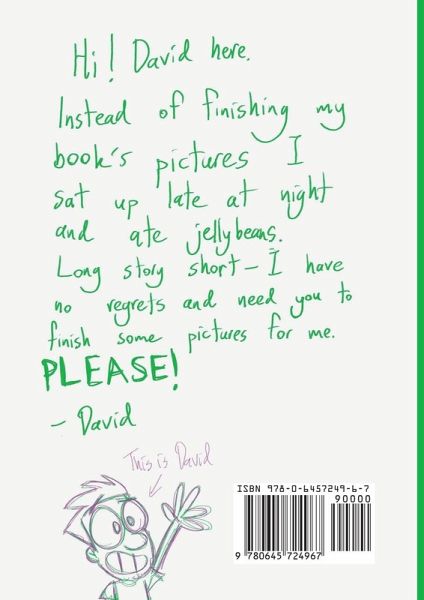 Hi! David here.
Instead of finishing my
book's pictures I
sat up late at night
and ate jellybeans.
Long story short – I have
no regrets and need you to
finish some pictures for me.
PLEASE!
– David
This is David
ISBN 978-0-6457249-6-7
90000
9 780645 724967